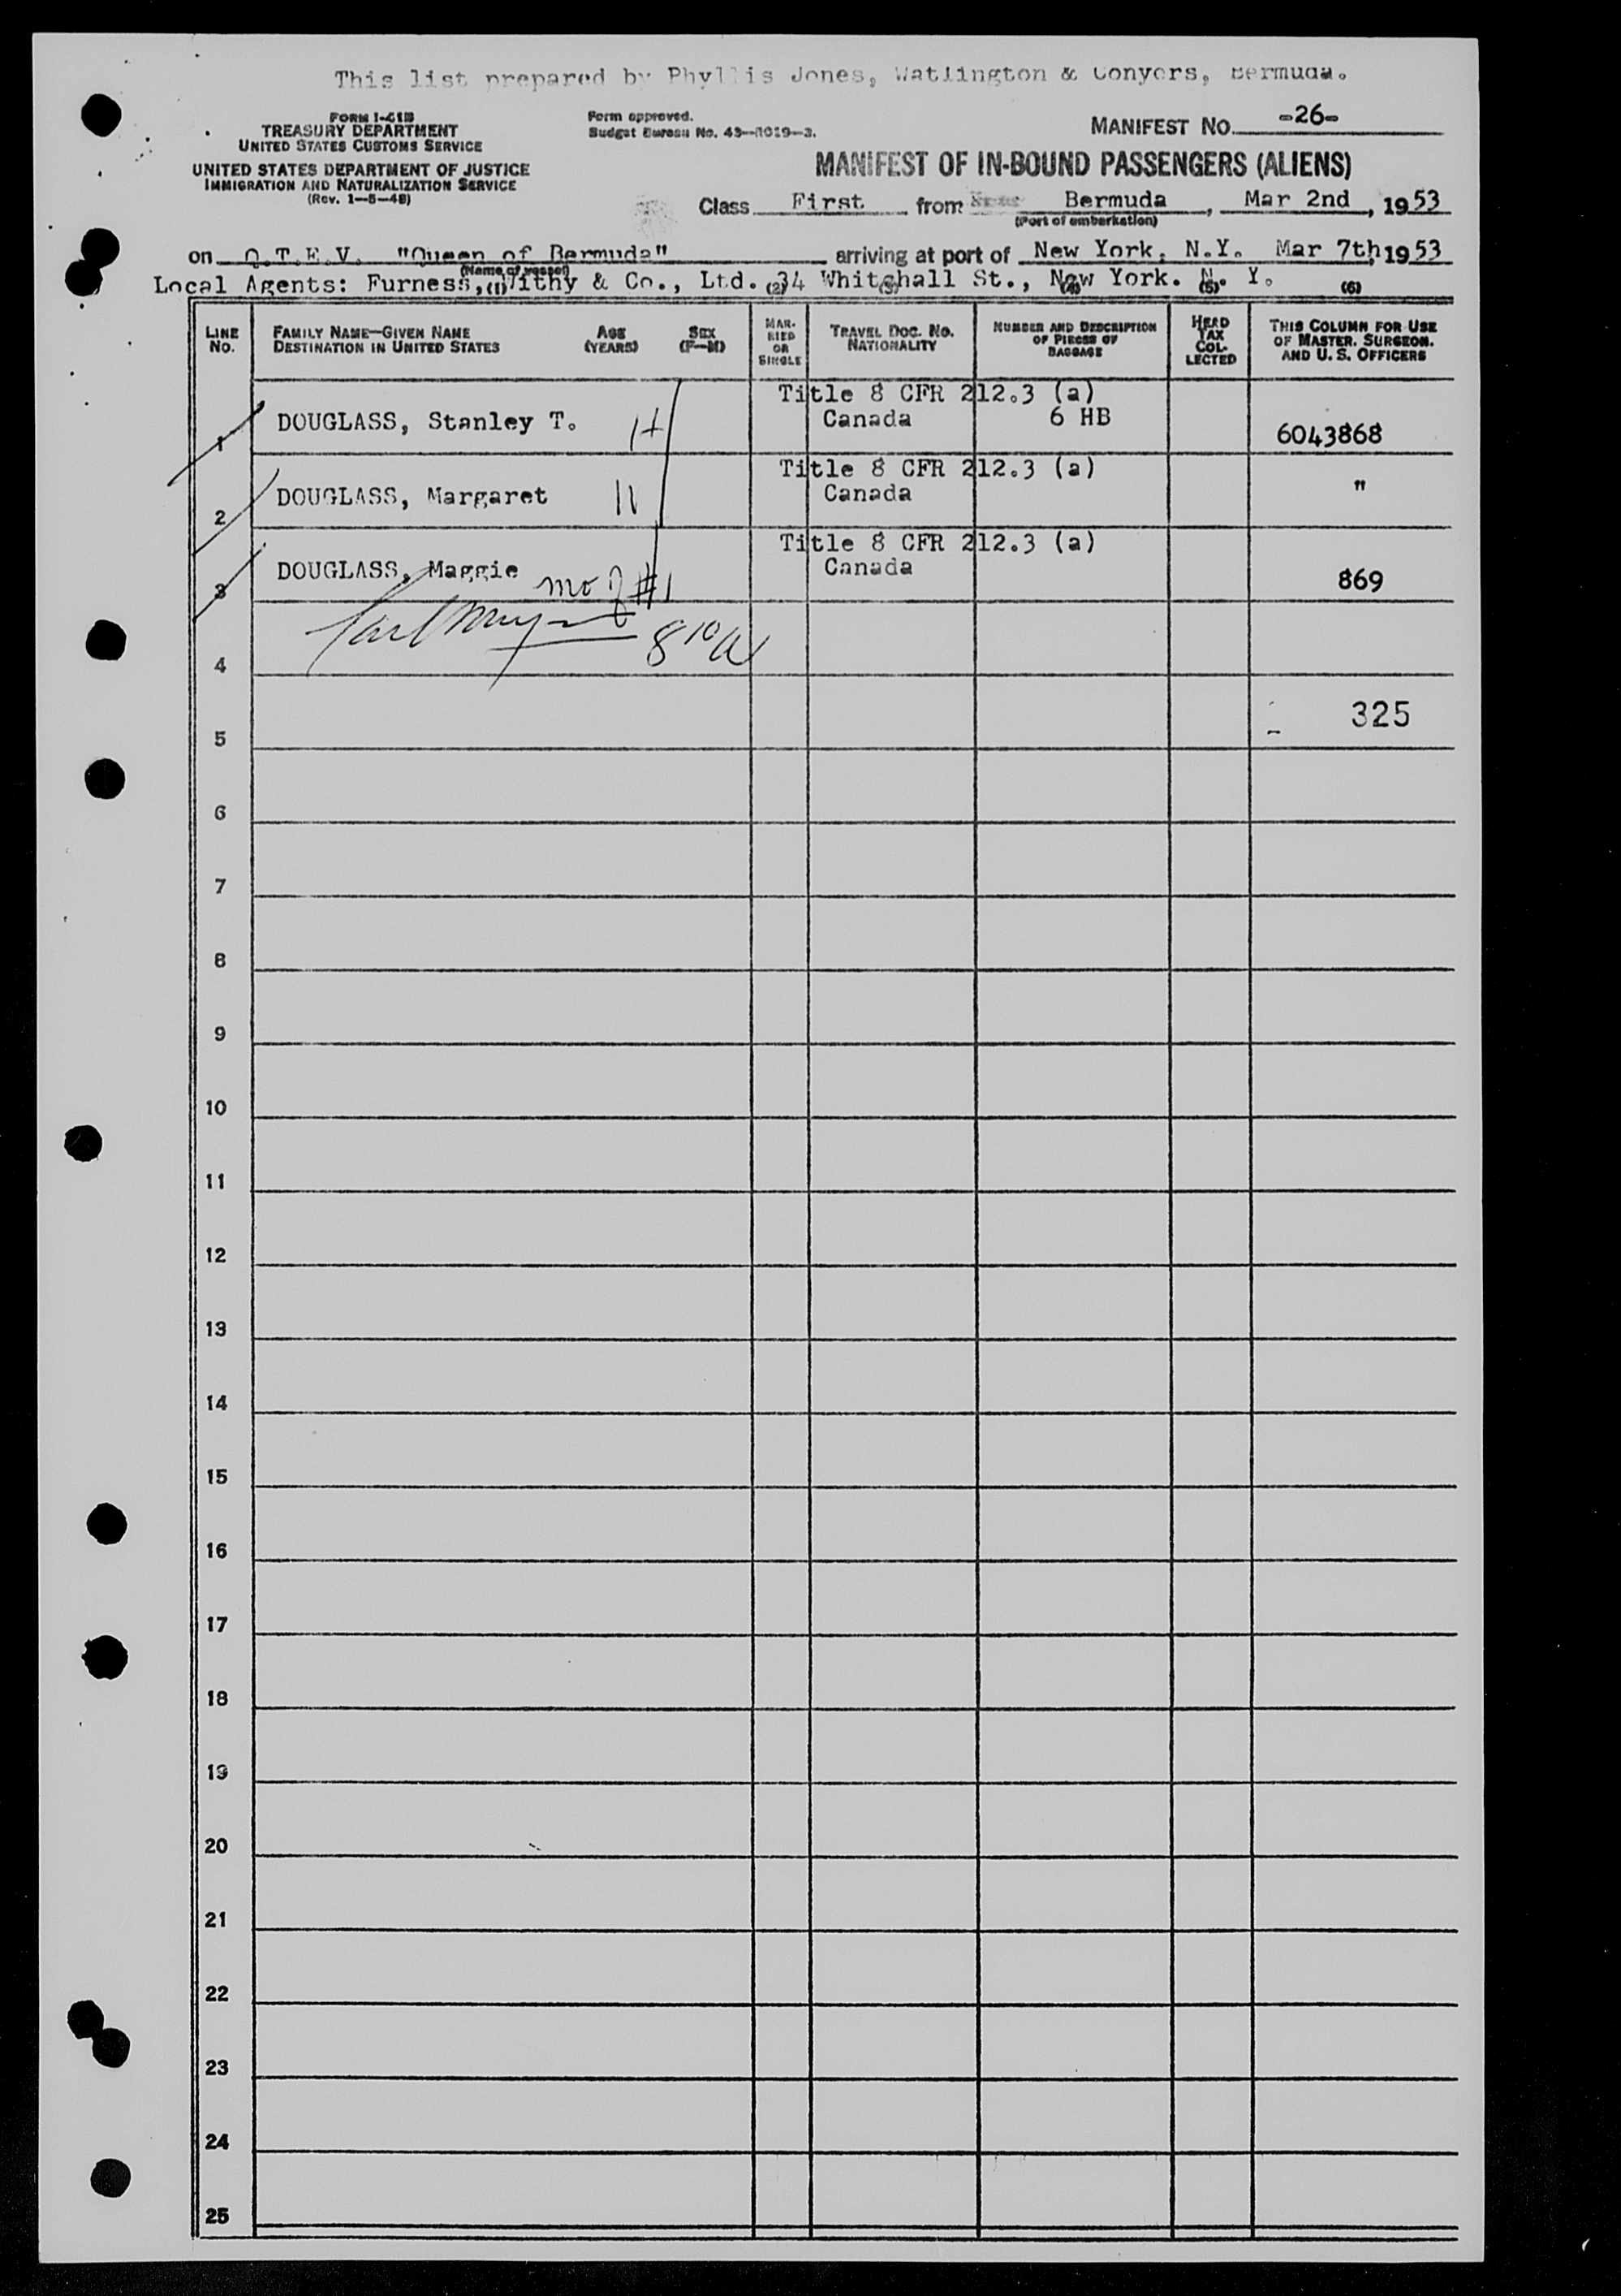 This list prepared by Phyllis Jones, Watlington & Conyers, Bermuda.
FORM I-418
TREASURY DEPARTMENT
UNITED STATES CUSTOMS SERVICE
UNITED STATES DEPARTMENT OF JUSTICE
IMMIGRATION AND NATURALIZATION SERVICE
(Rev. 1-5-49)
Form approved.
Budget Bureau No. 43-R019-3.
MANIFEST NO. -26-
MANIFEST OF IN-BOUND PASSENGERS (ALIENS)
Class First from Bermuda, Mar 2nd, 1953
(Port of embarkation)
on Q.T.E.V. "Queen of Bermuda" arriving at port of New York, N.Y. Mar 7th 1953
(Name of vessel)
Local Agents: Furness, Withy & Co., Ltd. 34 Whitehall St., New York. N. Y.
(1) (2) (3) (4) (5) (6)
LINE NO.
FAMILY NAME—GIVEN NAME
DESTINATION IN UNITED STATES
AGE (YEARS)
SEX (F—M)
MARRIED OR SINGLE
TRAVEL DOC. NO. NATIONALITY
NUMBER AND DESCRIPTION OF PIECES OF BAGGAGE
HEAD TAX COLLECTED
THIS COLUMN FOR USE OF MASTER, SURGEON, AND U. S. OFFICERS
Title 8 CFR 212.3 (a)
1 DOUGLASS, Stanley T. H Canada 6 HB 6043868
Title 8 CFR 212.3 (a)
2 DOUGLASS, Margaret W Canada "
Title 8 CFR 212.3 (a)
3 DOUGLASS, Maggie mo of #1 Canada 869
4
5 325
6
7
8
9
10
11
12
13
14
15
16
17
18
19
20
21
22
23
24
25